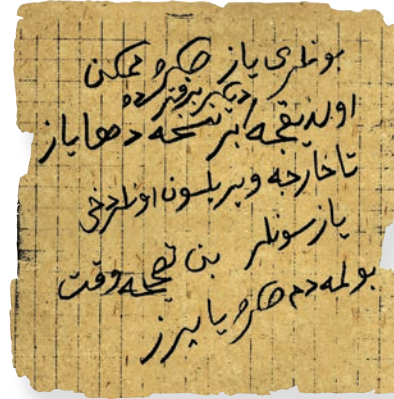 بونلری یاز صکره ممکن
دیگر بر دفترده
اولدیقجه بر نسخه دها یاز
تا خارجه ویریلسون اونلر دخی
یازسونلر بن تصحیحه وقت
بولمدم صکره یا یرز